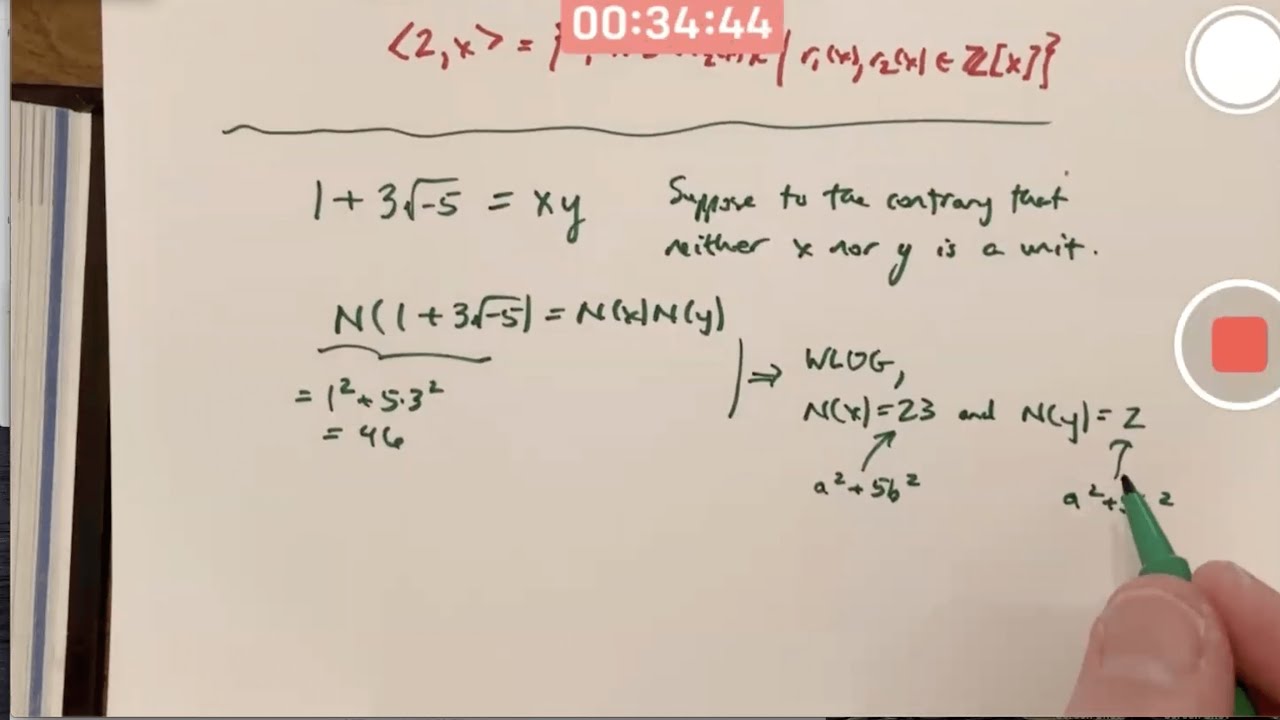 00:34:44
<2,x> = { | r₁(x), r₂(x) ∈ ℤ[x]}
1 + 3√-5 = xy
Suppose to the contrary that
neither x nor y is a unit.
N(1 + 3√-5) = N(x)N(y)
= 1² + 5·3²
= 46
⇒ WLOG,
N(x) = 23 and N(y) = 2
a² + 5b²
a² + 2